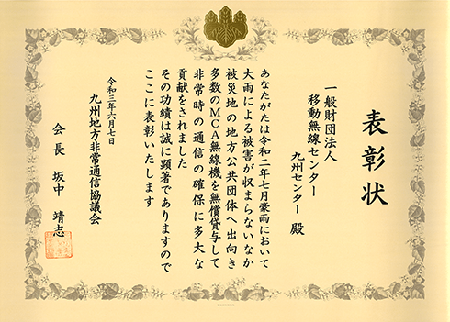 表彰状
一般財団法人
移動無線センター
九州センター 殿
あなたがたは令和二年七月豪雨において
大雨による被害が収まらないなか
被災地の地方公共団体へ出向き
多数のMCA無線機を無償貸与して
非常時の通信の確保に多大な
貢献をされました
その功績は誠に顕著でありますので
ここに表彰いたします
令和三年六月七日
九州地方非常通信協議会
会長 坂中 靖志